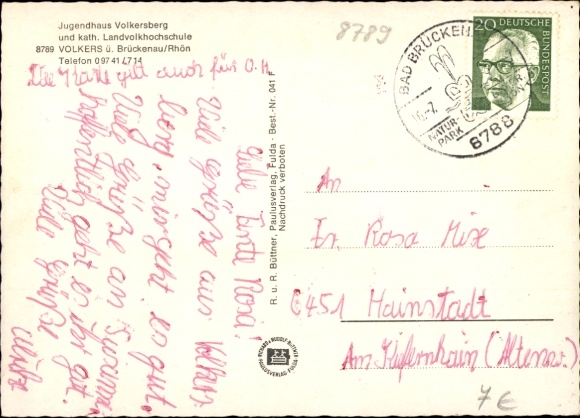 Jugendhaus Volkersberg
und kath. Landvolkhochschule
8789 VOLKERS ü. Brückenau/Rhön
Telefon 09741/714
8789
20 DEUTSCHE
BUNDESPOST
BAD BRÜCKENAU
NATUR-
PARK
8788
Die Karte gilt auch für O.H.
Liebe Tante Rosa!
Viele Grüße aus Volkers.
mir geht es gut.
Viele Grüße an Susanne
Hoffentlich geht es ihr gut.
Viele Grüße
R. u. R. Büttner, Paulusverlag, Fulda - Best.-Nr. 041 F
Nachdruck verboten
PAULUSVERLAG FULDA
An
Fr. Rosa Mix
6451 Hainstadt
Am Kiefernhain
7 €